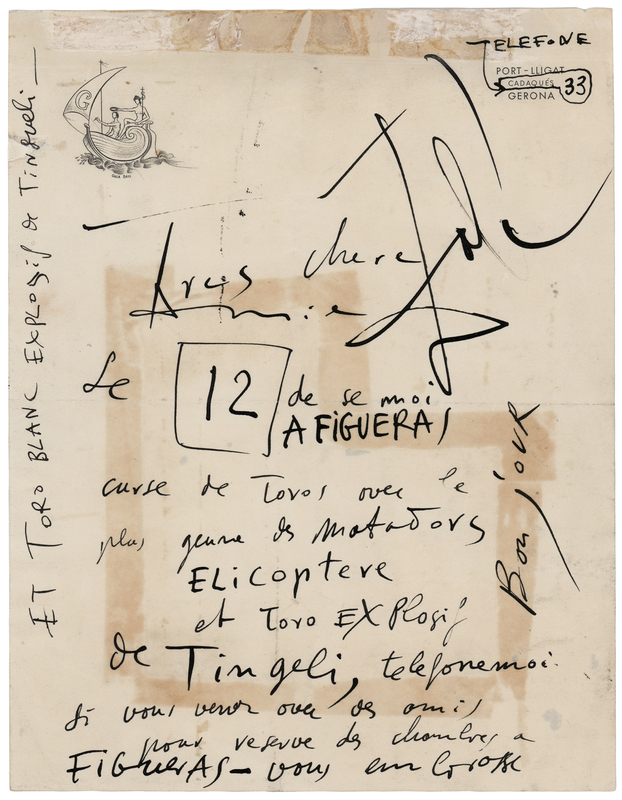 TELEFONE
PORT-LLIGAT
CADAQUÉS
GERONA
33
G
GALA DALI
Dali
Tres chere
Amie
Le 12 de se moi
A FIGUERAS
curse de Toros avec le
plus geune des matadors
ELicoptere
et Toro EXPlosif
de Tingeli, telefonemoi
si vous vener avec des amis
pour reserve des chambres a
FIGuerAS— vous embrasse
BonjoUR
ET TORO BLANC EXPLOSif de Tingueli—